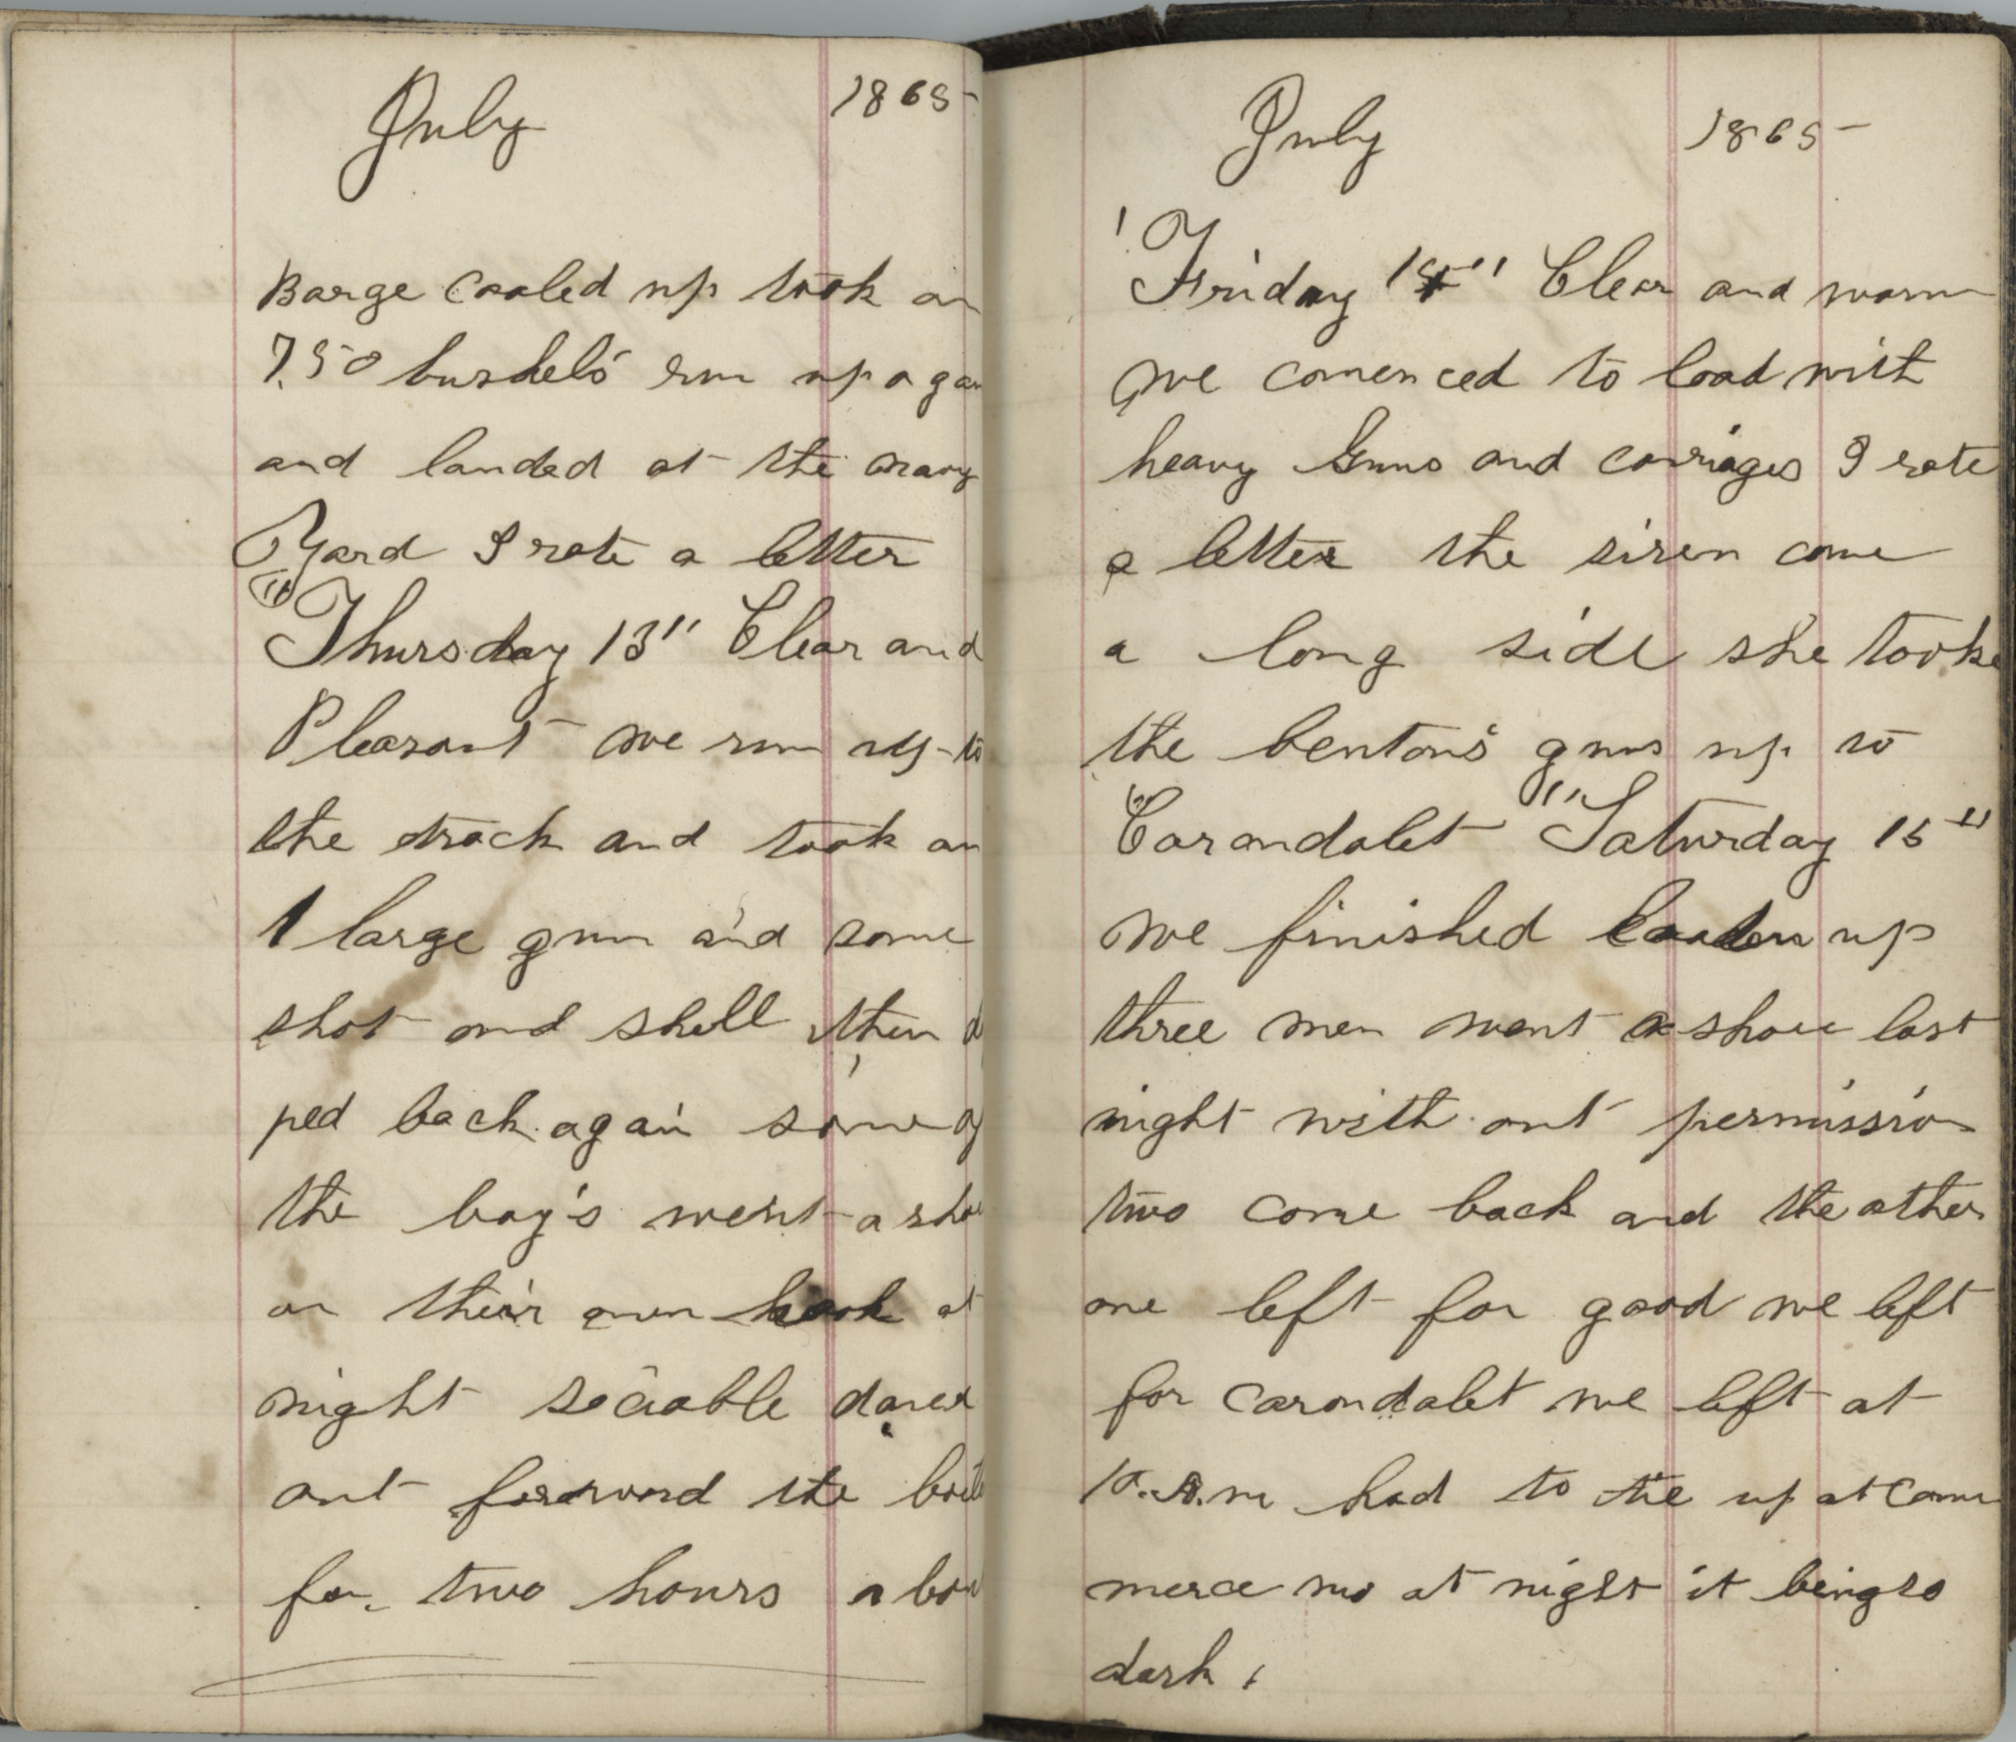 July 1865
Barge coaled up took on
7.50 bushels run up again
and landed at the Navy
Yard I rote a letter
Thursday 13" Clear and
Pleasant we run up to
the dock and took on
1 large gun and some
shot and shell then
ped back again some of
the boy's went a shore
on their own hook at
night sociable dance
out forward the boat
for two hours aboa
July 1865
Friday 14" Clear and warm
we comenced to load with
heavy Guns and carriages I rote
a letter the siren come
a long side she tooke
the benton's guns up to
Carondalet Saturday 15"
we finished loaden up
three men went a shore last
night with out permission
two come back and the other
one left for good we left
for carondalet we left at
10.A.m had to tie up at Com
merce mo at night it being so
dark.